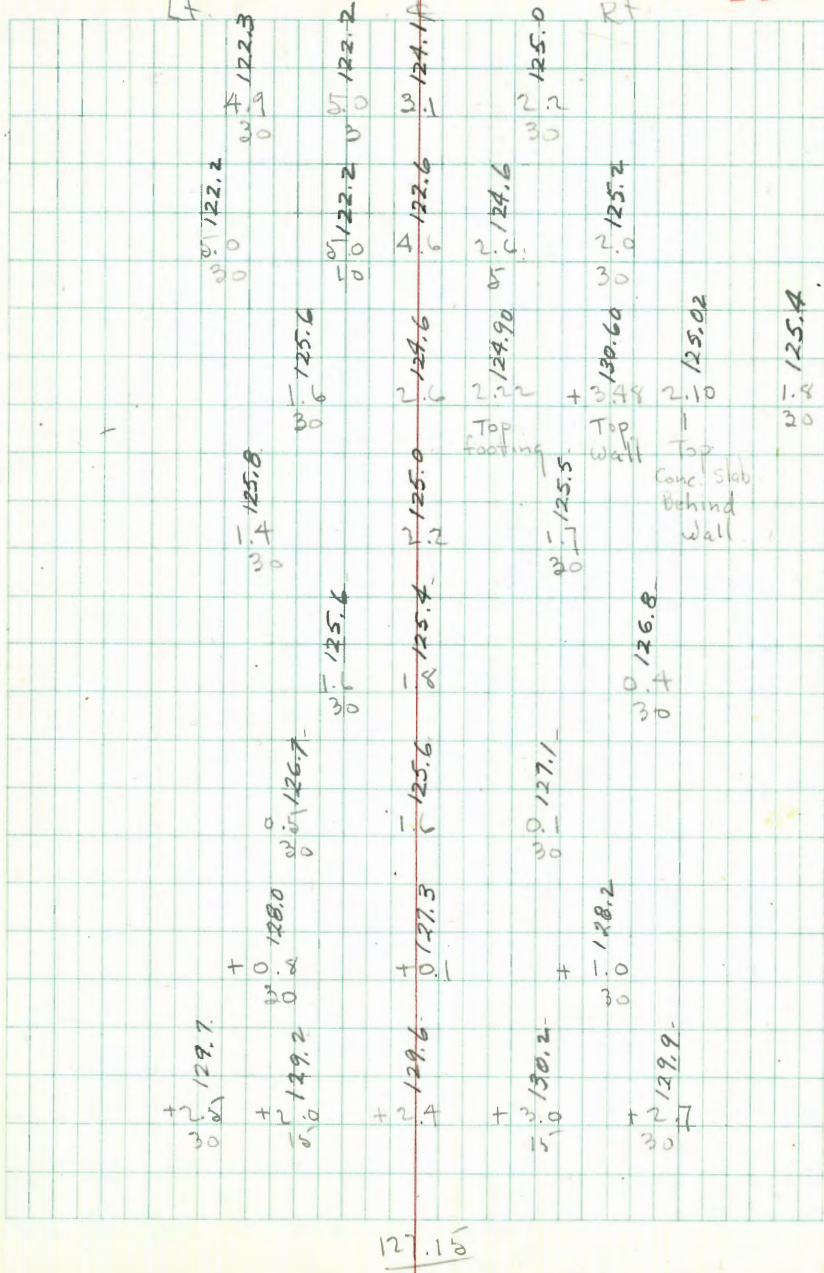 Lt Rt
122.3 122.2 124.1 125.0
4.9 5.0 3.1 2.2
30 30
122.2 122.2 122.6 124.6 125.2
5.0 5.0 4.6 2.6 2.0
30 10 5 30
125.6 124.6 124.90 130.60 125.02 125.4
1.6 2.6 2.22 +3.48 2.10 1.8
30 Top Top Top 30
footing wall Conc. Slab
Behind
Wall
125.8 125.0 125.5
1.4 2.2 1.7
30 30
125.6 125.4 126.8
1.6 1.8 0.4
30 30
126.7 125.6 127.1
0.5 1.6 0.1
30 30
128.0 127.3 128.2
+0.8 +0.1 +1.0
30 30
129.7 129.2 129.6 130.2 129.9
+2.5 +2.0 +2.4 +3.0 +2.7
30 15 15 30
127.15